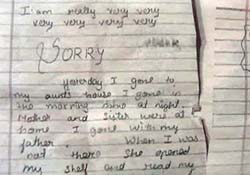 I am really very very
very very very very
SORRY
yesterday I gone to
my aunts house I gone in
the morning came at night.
Mother and Sister were at
home I gone with my
father. When I was
not there she opened
my shelf and read my